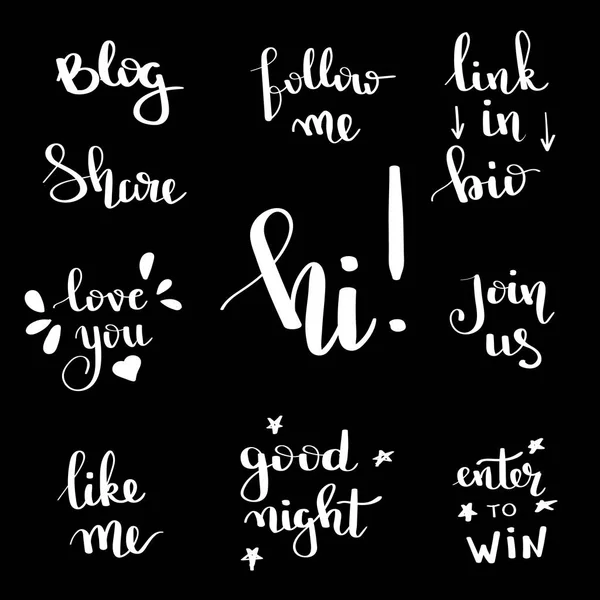 Blog
follow
me
link
in
bio
Share
hi!
love
you
Join
us
like
me
good
night
enter
TO
WIN